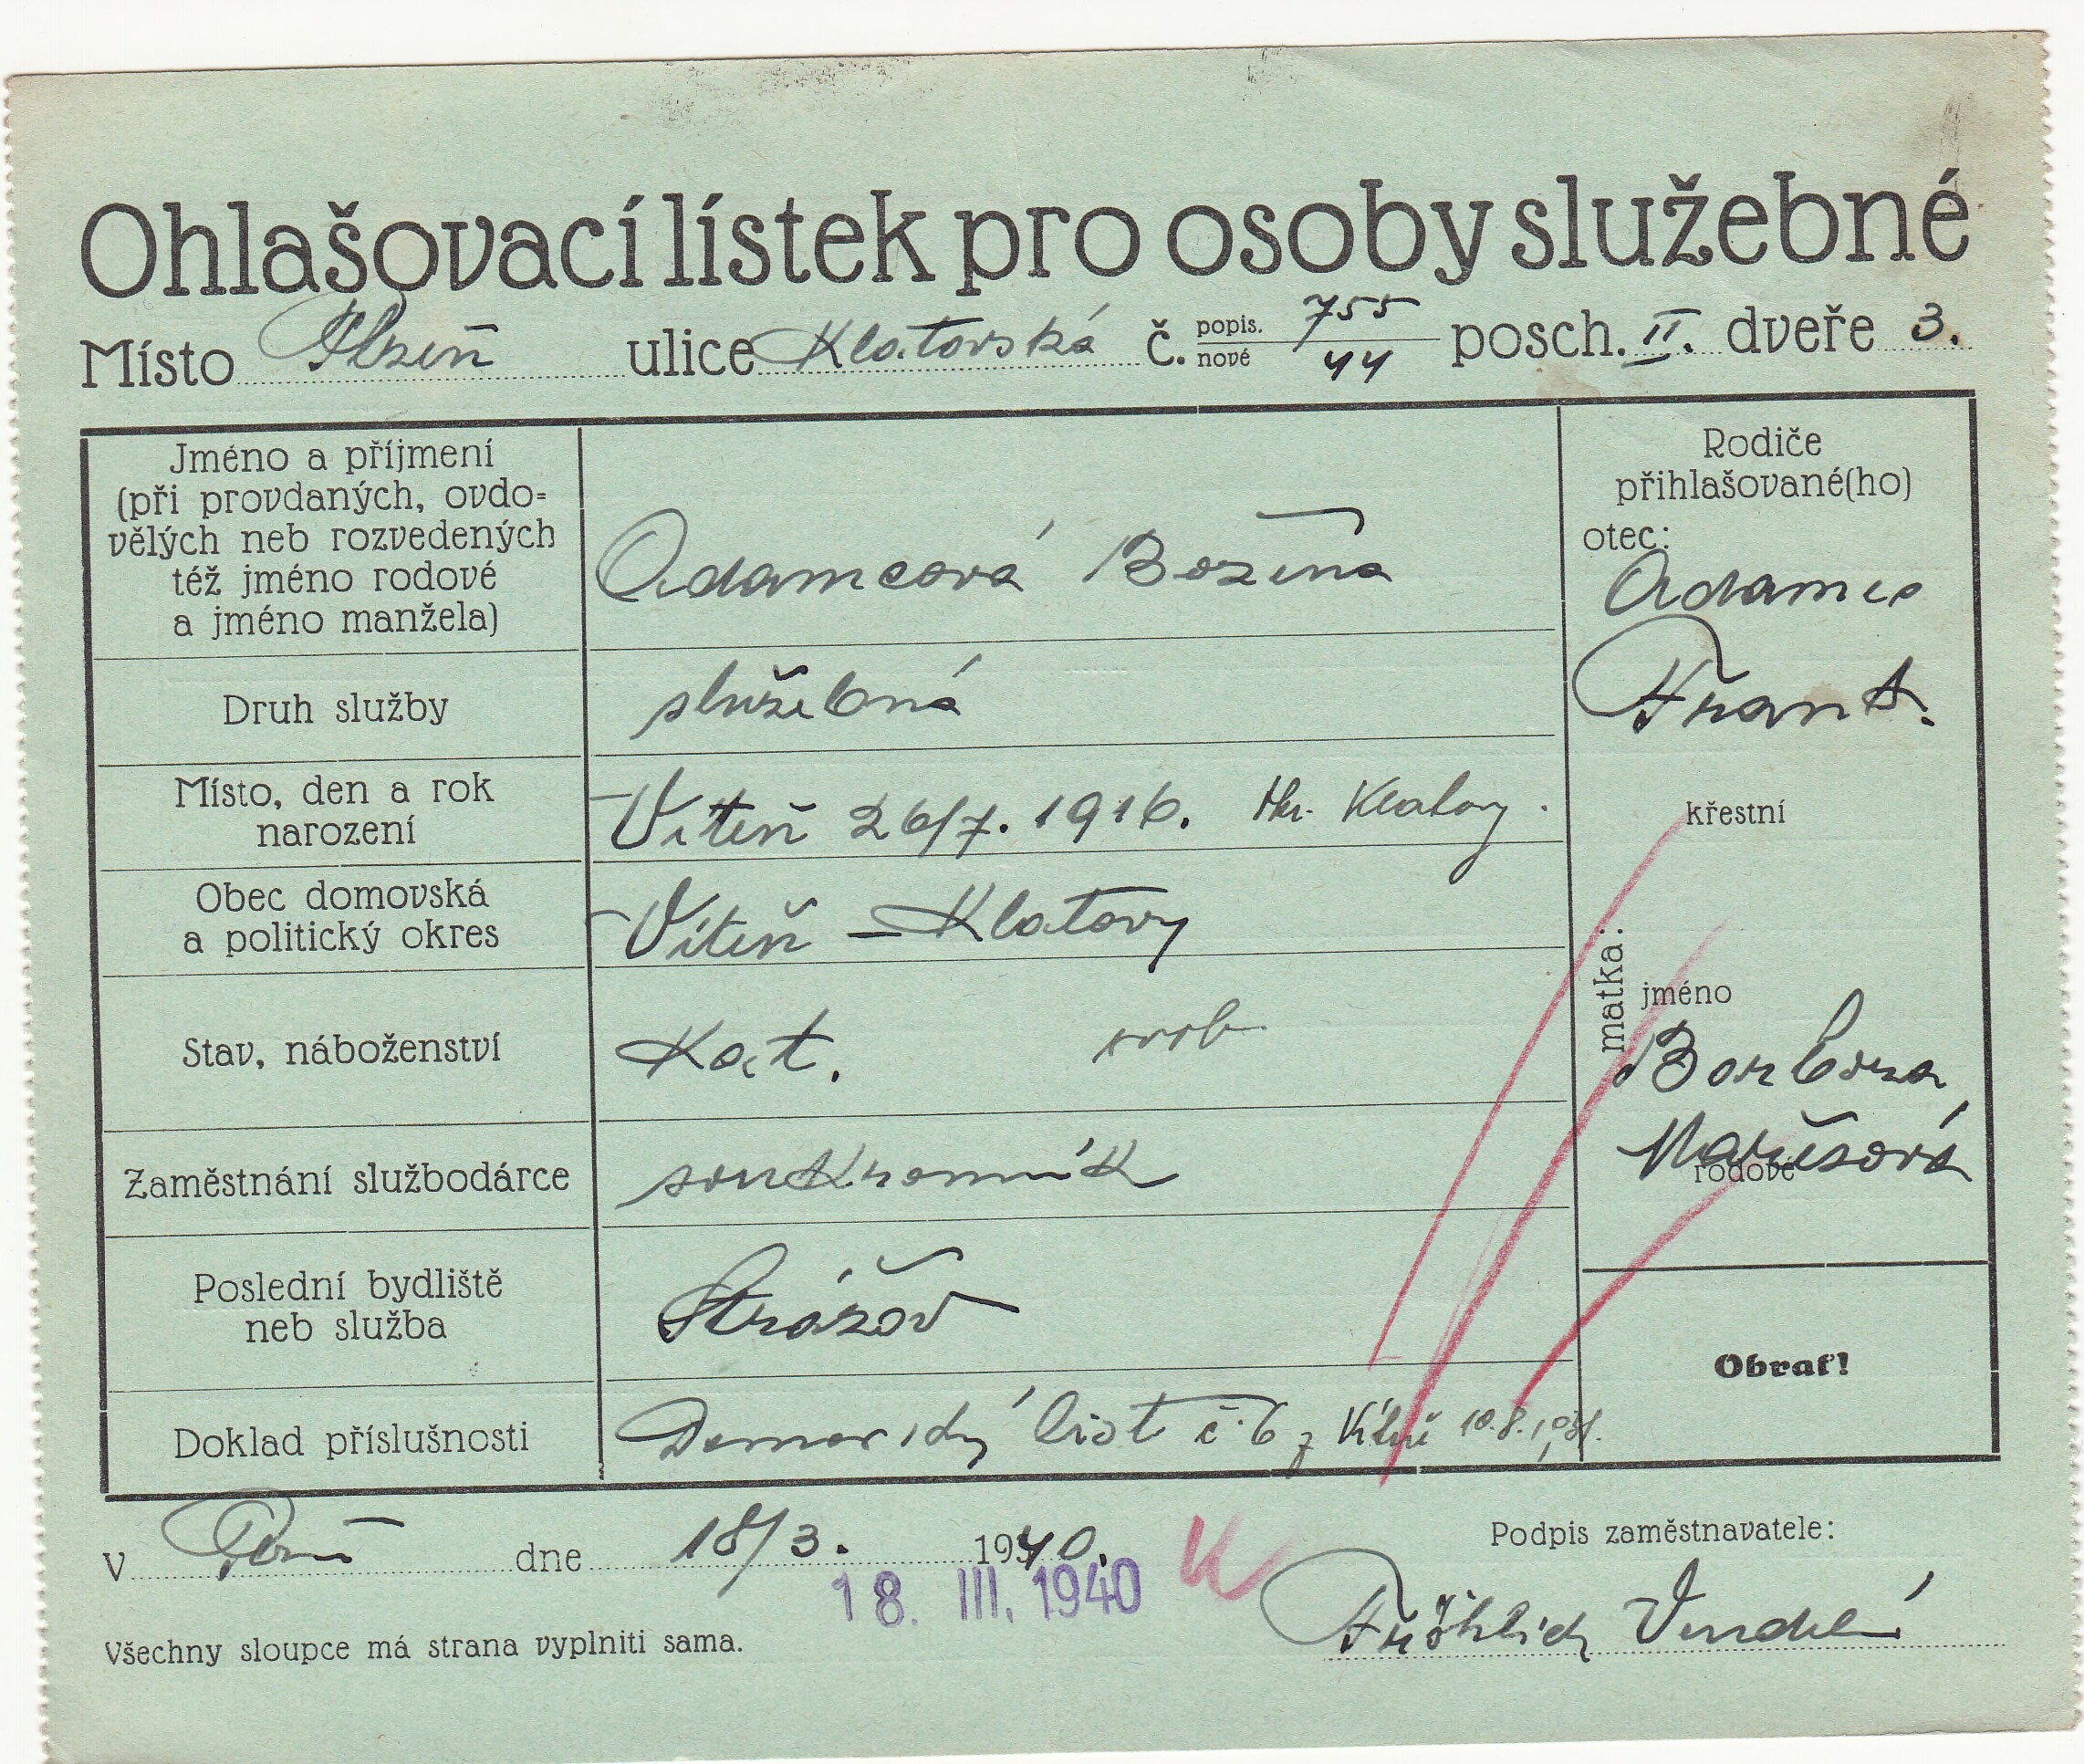 Ohlašovací lístek pro osoby služebné
Místo Plzeň ulice Klatovská č. popis. 755 nové 44 posch. II. dveře 3.
Jméno a příjmení
(při provdaných, ovdo=
vělých neb rozvedených
též jméno rodové
a jméno manžela)
Adamcová Božena
Druh služby
služebná
Místo, den a rok
narození
Víteň 26/7. 1916. Klatovy.
Obec domovská
a politický okres
Víteň – Klatovy
Stav, náboženství
Kat. svob
Zaměstnání službodárce
soukromník
Poslední bydliště
neb služba
Strážov
Doklad příslušnosti
Domovský list č. 6 z 10.8.
Rodiče
přihlašované(ho)
otec:
Adamec
Frant.
matka:
křestní
jméno
Barbora
rodové
Obrať!
V dne 18/3. 1940.
18. III. 1940
Podpis zaměstnavatele:
Fröhlich Vendelín
Všechny sloupce má strana vyplniti sama.